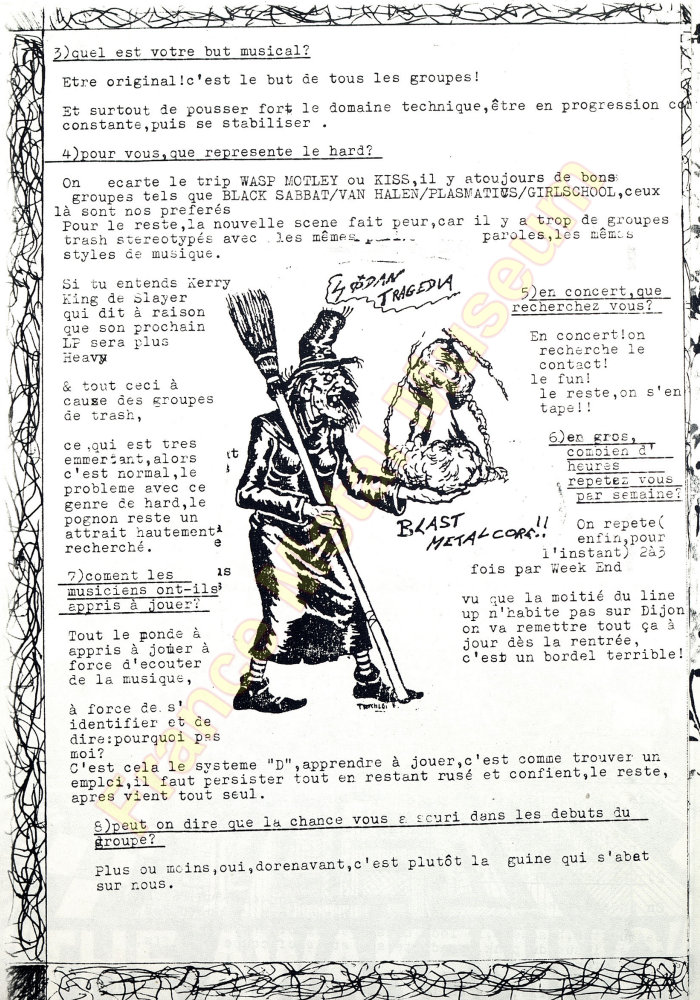 3)quel est votre but musical?
Etre original!c'est le but de tous les groupes!
Et surtout de pousser fort le domaine technique,être en progression con
constante,puis se stabiliser .
4)pour vous,que represente le hard?
On ecarte le trip WASP MOTLEY ou KISS,il y atoujours de bons
groupes tels que BLACK SABBAT/VAN HALEN/PLASMATICS/GIRLSCHOOL,ceux
là sont nos preferés
Pour le reste,la nouvelle scene fait peur,car il y a trop de groupes
trash stereotypés avec les mêmes paroles,les mêmes
styles de musique.
Si tu entends Kerry
King de Slayer
qui dit à raison
que son prochain
LP sera plus
Heavy
& tout ceci à
cause des groupes
de trash,
ce,qui est tres
emmertant,alors
c'est normal,le
probleme avec ce
genre de hard,le
pognon reste un
attrait hautement
recherché.
TRAGEDIA
BLAST
METALCORE!!
5)en concert,que
recherchez vous?
En concert!on
recherche le
contact!
le fun!
le reste,on s'en
tape!!
6)en gros,
combien d'
heures
repetez vous
par semaine?
On repete(
enfin,pour
l'instant) 2à3
fois par Week End
vu que la moitié du line
up n'habite pas sur Dijon
on va remettre tout ça à
jour dès la rentrée,
c'est un bordel terrible!
7)coment les
musiciens ont-ils
appris à jouer?
Tout le monde à
appris à jouer à
force d'ecouter
de la musique,
à force de s'
identifier et de
dire:pourquoi pas
moi?
C'est cela le systeme "D",apprendre à jouer,c'est comme trouver un
emploi,il faut persister tout en restant rusé et confient,le reste,
apres vient tout seul.
8)peut on dire que la chance vous a souri dans les debuts du
groupe?
Plus ou moins,oui,dorenavant,c'est plutôt la guine qui s'abat
sur nous.
France Metal Museum